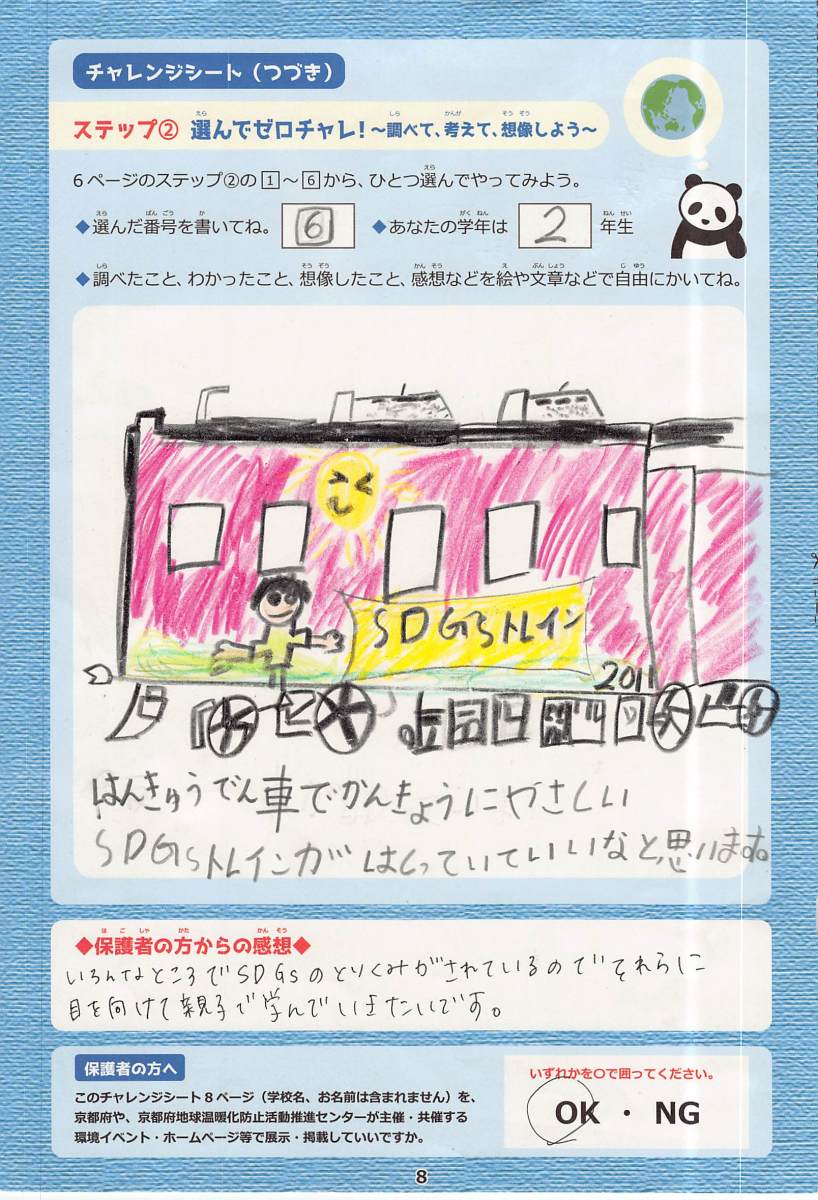 チャレンジシート（つづき）
ステップ② 選んでゼロチャレ！～調べて、考えて、想像しよう～
6ページのステップ②の1～6から、ひとつ選んでやってみよう。
◆選んだ番号を書いてね。 6 ◆あなたの学年は 2 年生
◆調べたこと、わかったこと、想像したこと、感想などを絵や文章などで自由にかいてね。
SDGsトレイン
2011
はんきゅうでん車でかんきょうにやさしい
SDGsトレインがはしっていていいなと思います。
◆保護者の方からの感想◆
いろんなところでSDGsのとりくみがされているのでそれらに
目を向けて親子で学んでいきたいです。
保護者の方へ
このチャレンジシート8ページ（学校名、お名前は含まれません）を、
京都府や、京都府地球温暖化防止活動推進センターが主催・共催する
環境イベント・ホームページ等で展示・掲載していいですか。
いずれかを○で囲ってください。
OK ・ NG
8